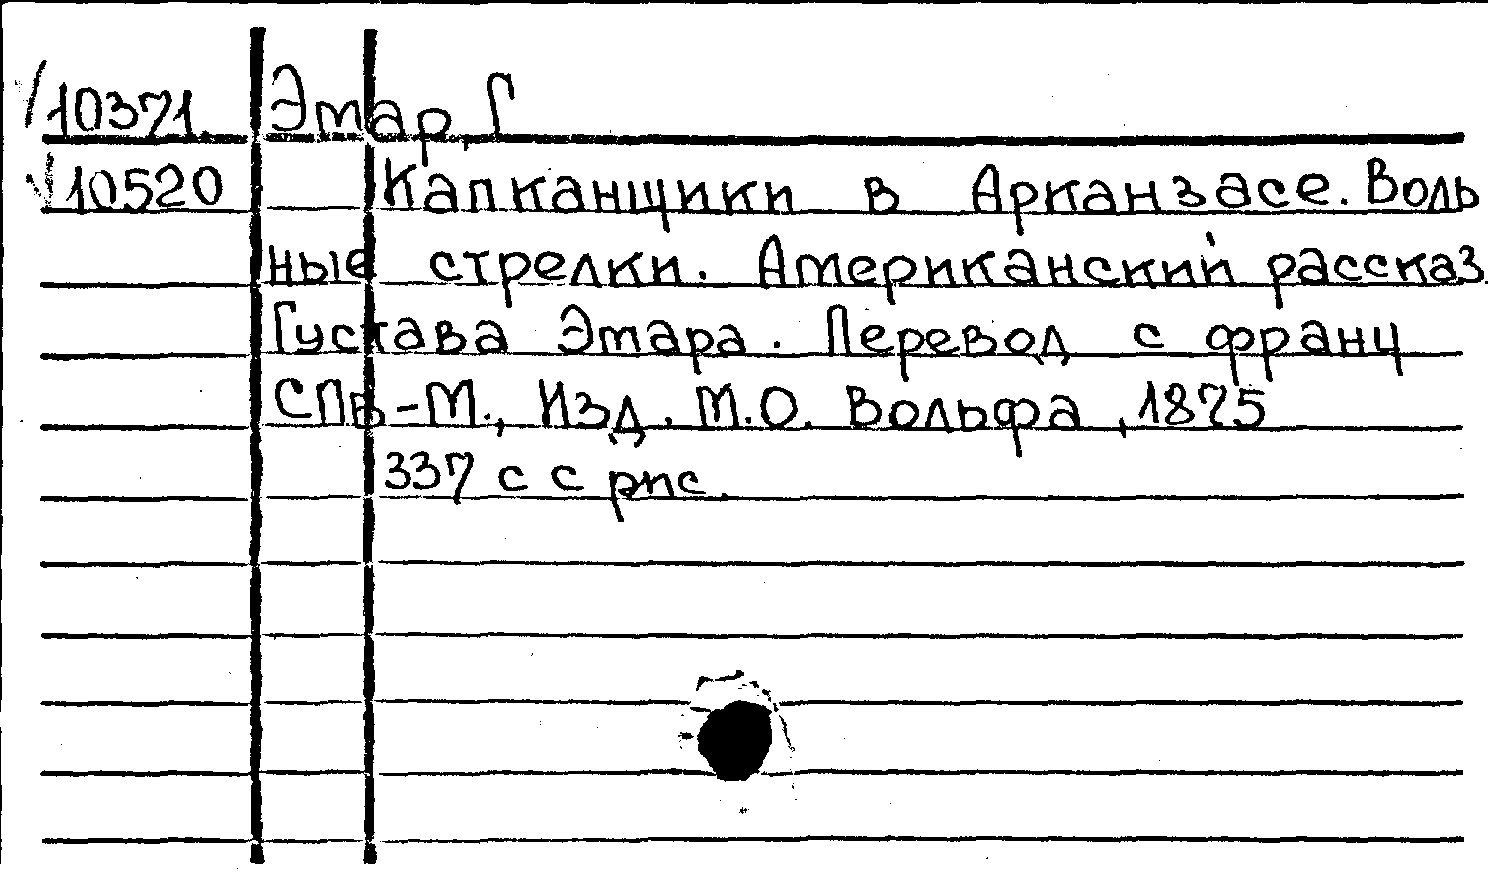 10371 Эмар, Г
10520 Капканщики в Арканзасе. Воль
ные стрелки. Американский рассказ
Густава Эмара. Перевод с франц
СПв-М., Изд. М.О. Вольфа, 1875
337 с с рис.